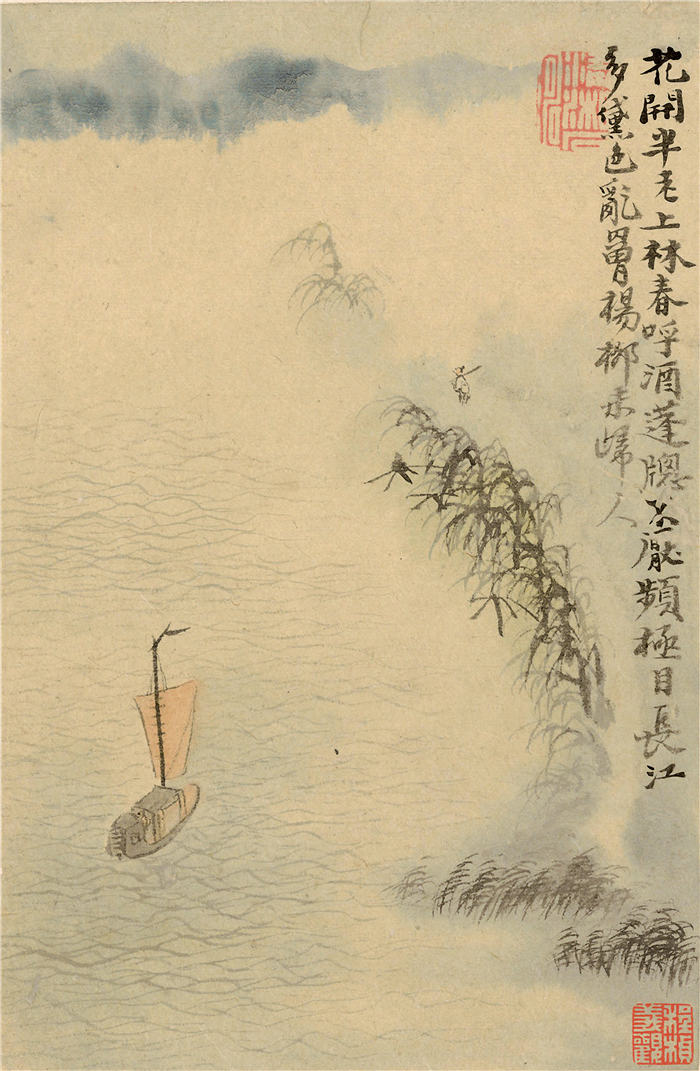 花開半老上林春呼酒蓬牕不厭頻極目長江
多黛色亂罥楊柳未歸人